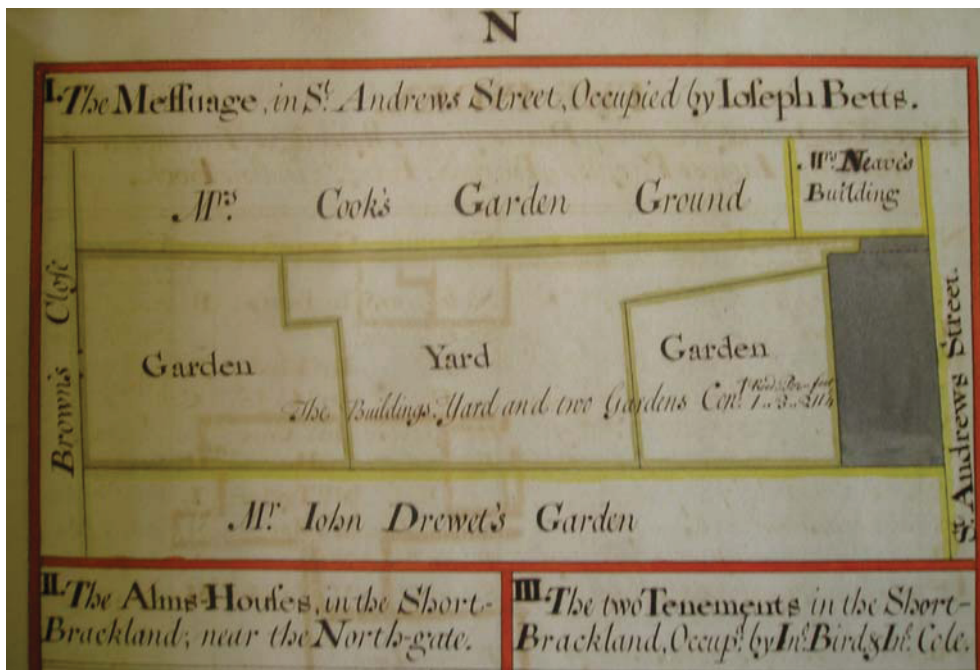 N
I. The Meſſuage, in St. Andrews Street, Occupied by Ioſeph Betts.
Mrs. Cook's Garden Ground
Mrs. Neave's
Building
Brown's Cloſe
Garden
Yard
Garden
The Buildings, Yard and two Gardens Con.
St. Andrews Street.
Mr. Iohn Drewet's Garden
II. The Alms-Houſes, in the Short-
Brackland; near the North-gate.
III. The two Tenements in the Short-
Brackland, Occupd. by Ino. Bird & Ino. Cole.